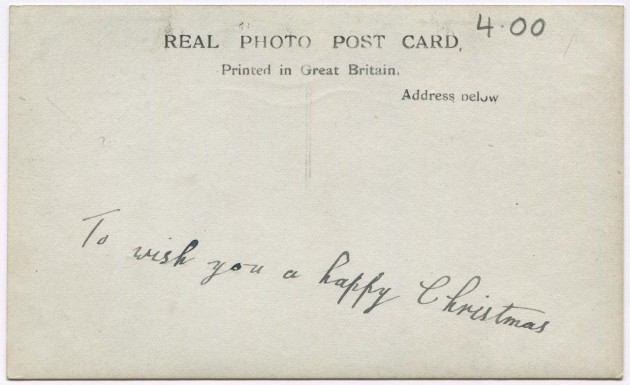 4.00
REAL PHOTO POST CARD,
Printed in Great Britain.
Address below
To wish you a happy Christmas